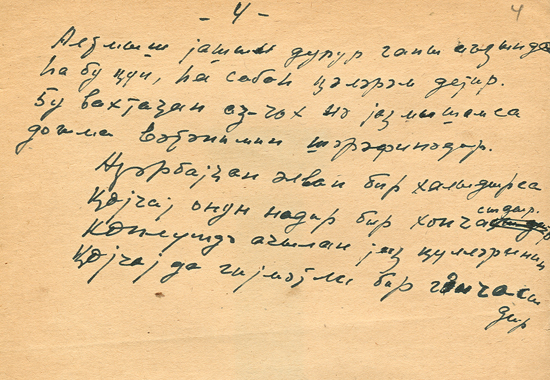 - 4 -
4
Алтмыш јашын дурур гаш
һа бу ҝүн, һа сабаһ ҝәләрәм дејир.
Бу вахтаҹан аз-чох нә јазмышамса
доғма вәтәнимин шәрәфинәдир.
Азәрбајҹан әлван бир халыдырса
Ҝөјчај онун надир бир хончасыдыр.
Көнлүмдә ачылан јаз ҝүлләринин
Ҝөјчај да гијмәтли бир гөнчәси
дир